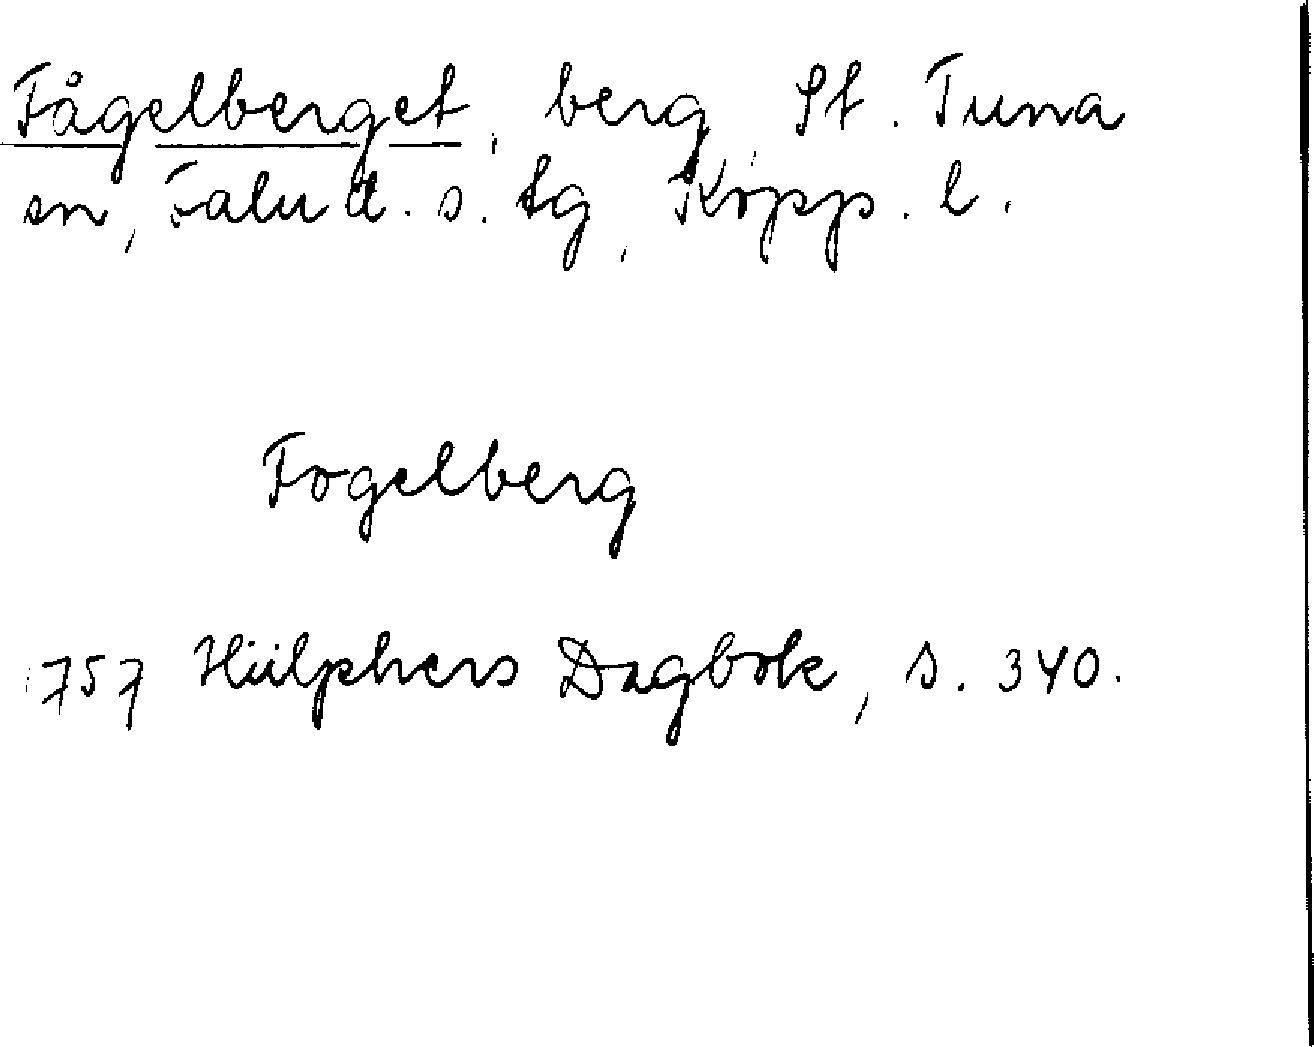 Fågelberget, berg, St. Tuna
sn, Falu d. s. tg, Kopp. l.
Fogelberg
1757 Hülphers Dagbok, s. 340.